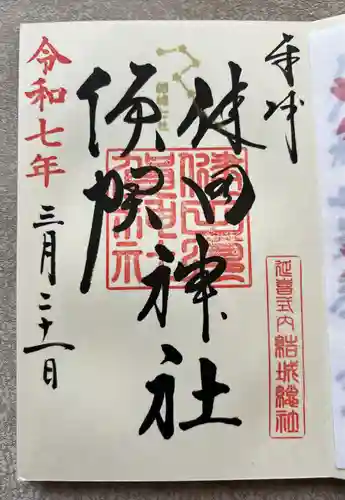 奉拝
健田
須賀
神社
令和七年
三月二十一日
健田須
賀神社
延喜式内 結城總社